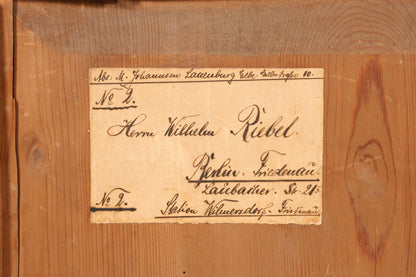 Abs. M. Johannsen Lauenburg Elbe Elbstraße 10.
No 2.
Herrn Wilhelm Riebel.
Berlin-Friedenau.
Laubacher-Str. 21
No 2.
Station Wilmersdorf-Friedenau